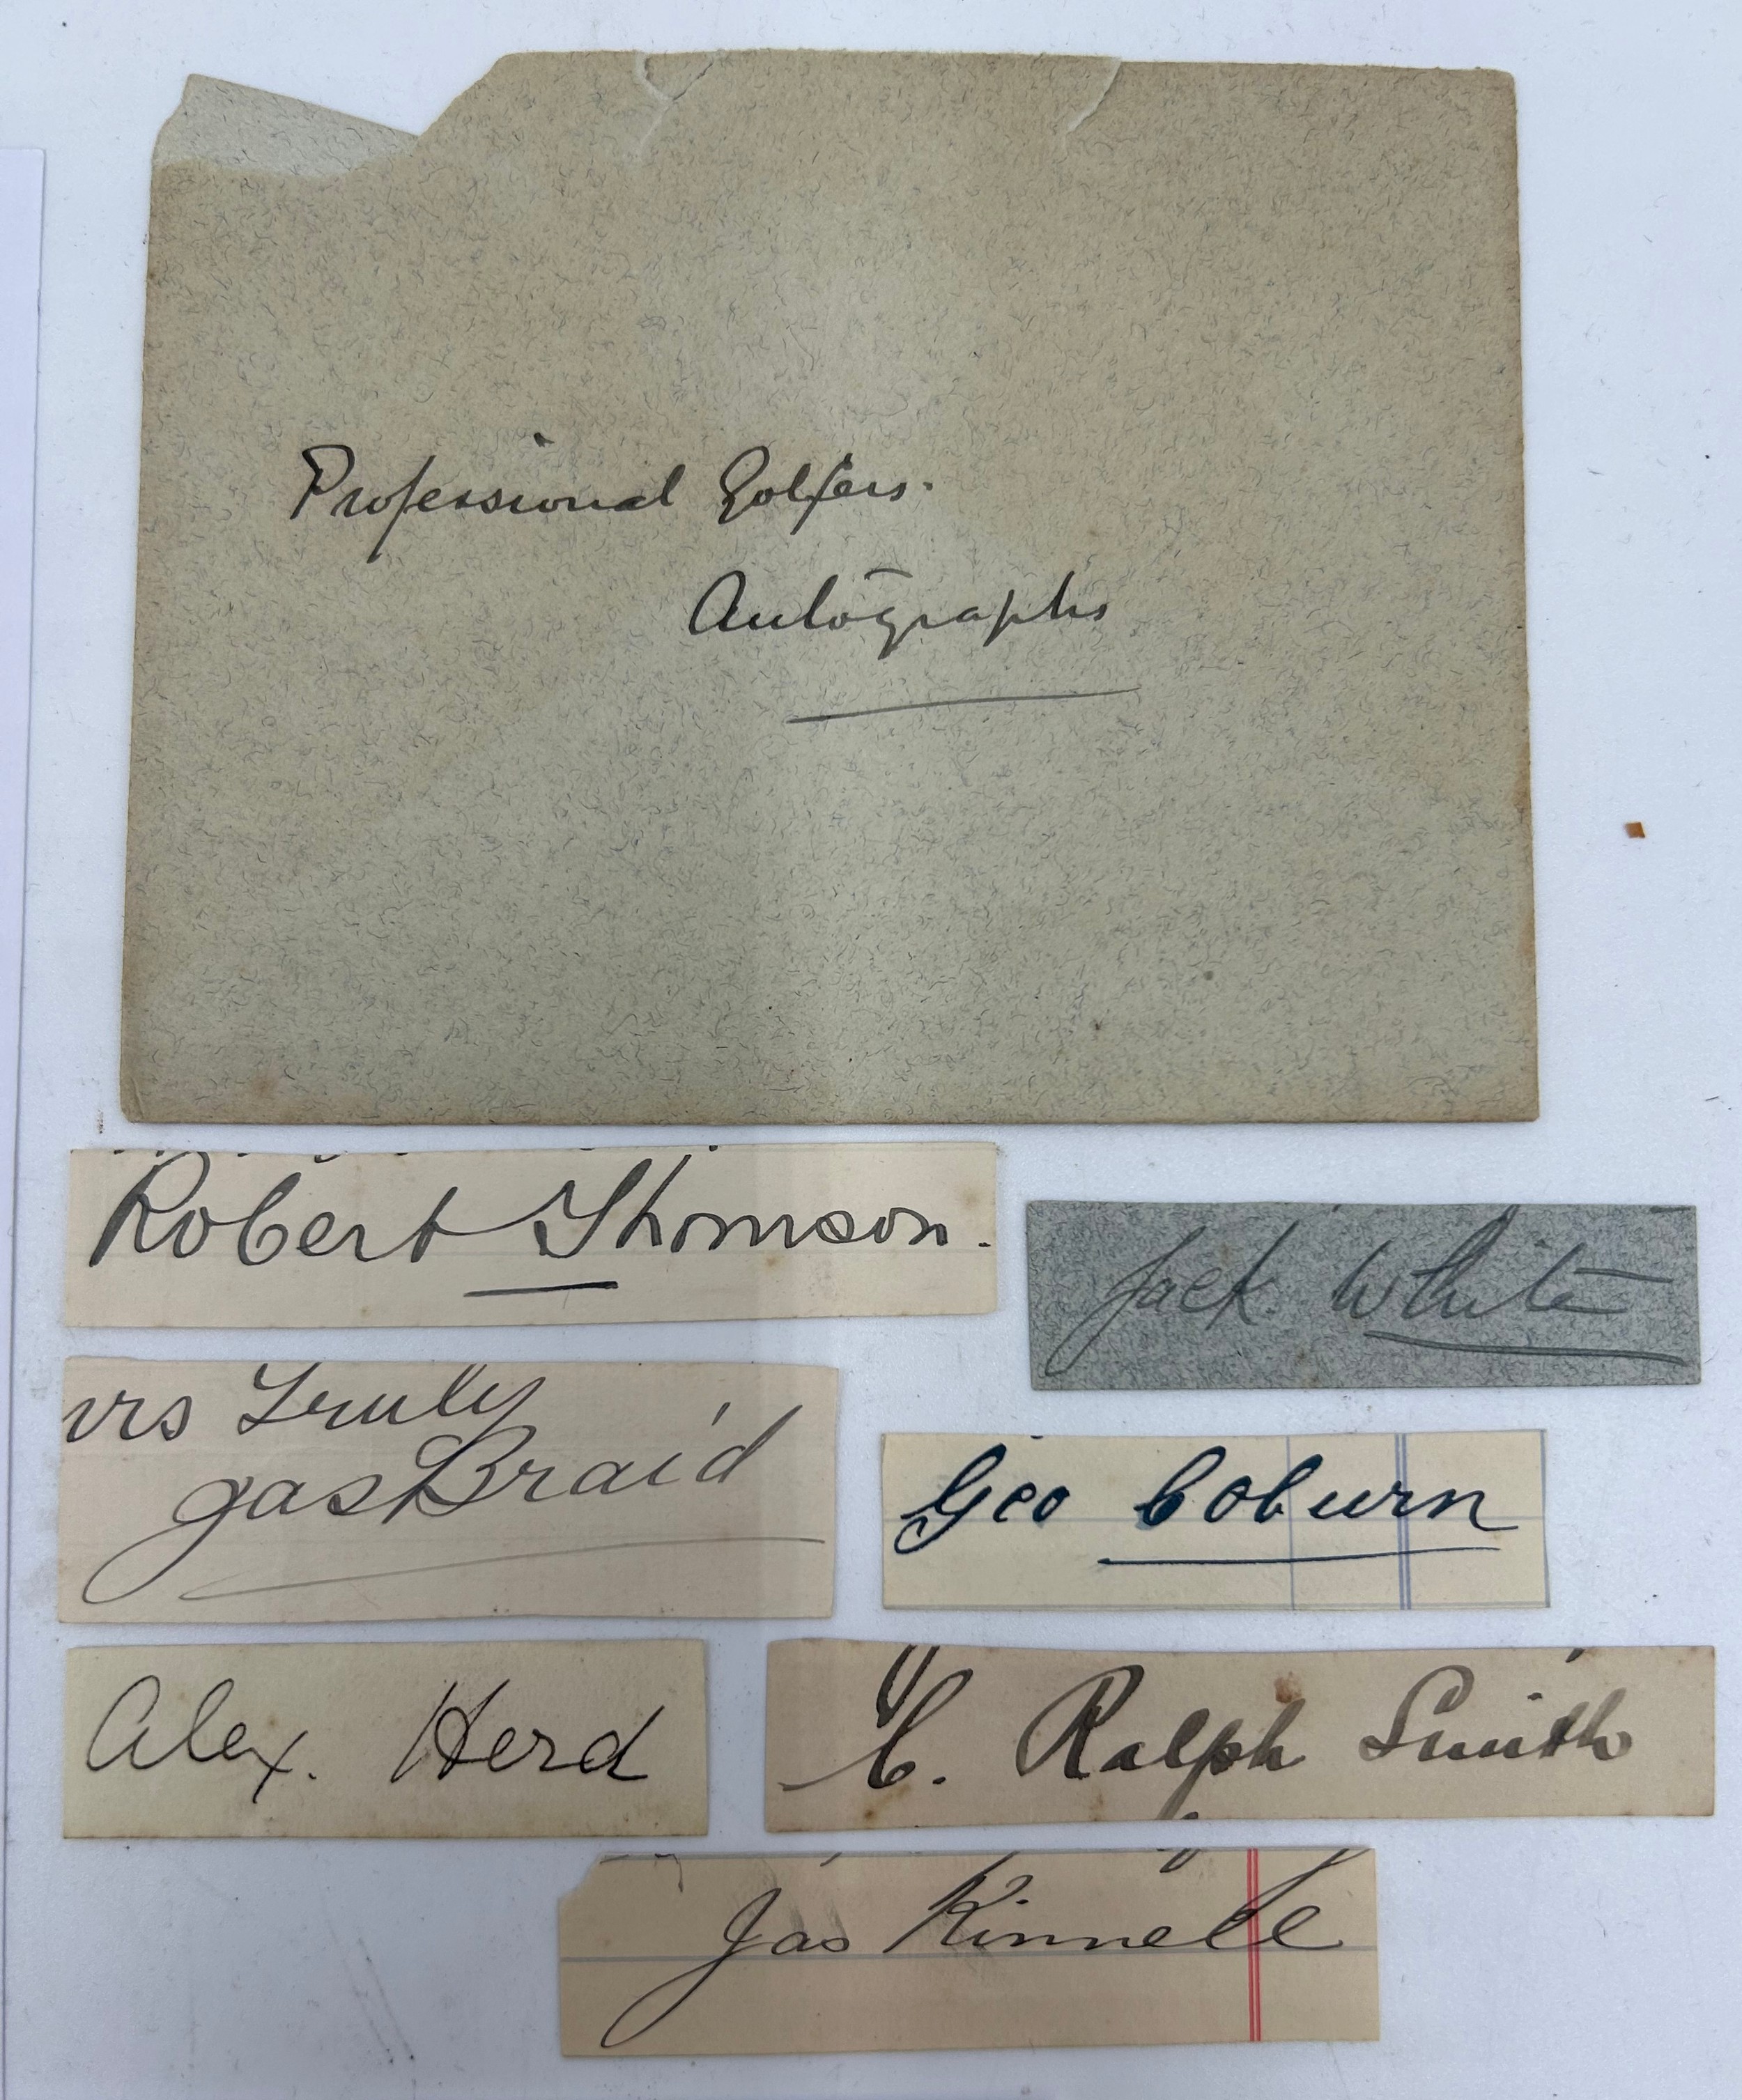 Professional Golfers.
Autographs
Robert Thomson.
Jack White
urs Truly
Jas Braid
Geo Coburn
Alex. Herd
C. Ralph Smith
Jas Kinnell